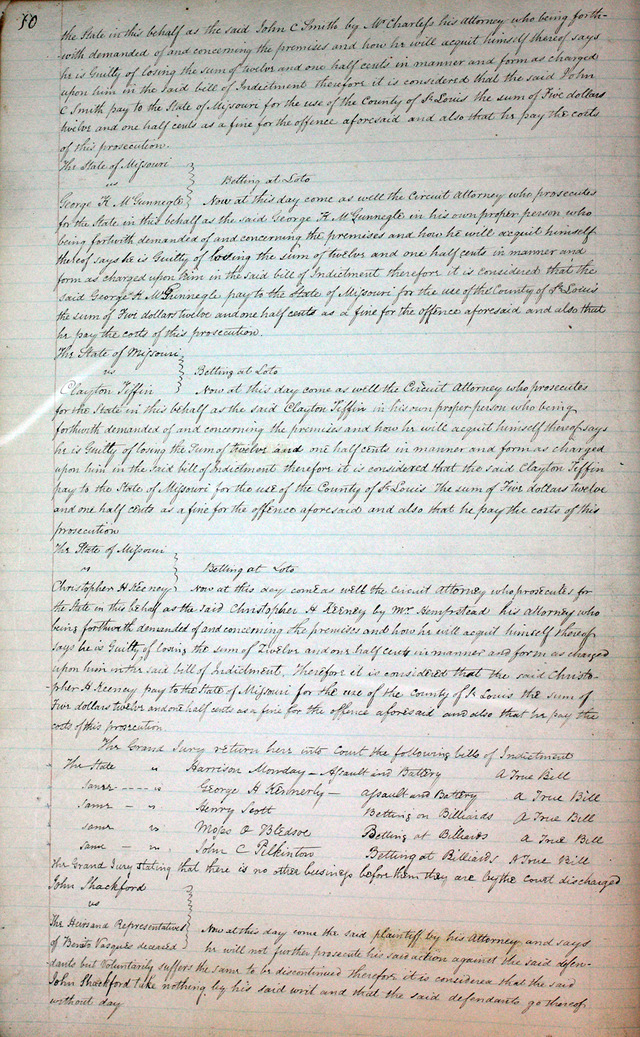 50
the State in this behalf as the said John C Smith by Mr Charless his Attorney who being forth-
with demanded of and concerning the premises and how he will acquit himself thereof says
he is Guilty of losing the sum of twelve and one half cents in manner and form as charged
upon him in the said bill of Indictment therefore it is considered that the said John
C Smith pay to the State of Missouri for the use of the County of St Louis the sum of Five dollars
twelve and one half cents as a fine for the offence aforesaid and also that he pay the costs
of this prosecution.
The State of Missouri
vs Betting at Loto
George K McGunnegle Now at this day come as well the Circuit Attorney who prosecutes
for the State in this behalf as the said George K McGunnegle in his own proper person who
being forthwith demanded of and concerning the premises and how he will acquit himself
thereof says he is Guilty of losing the sum of twelve and one half cents in manner and
form as charged upon him in the said bill of Indictment therefore it is considered that the
said George K McGunnegle pay to the State of Missouri for the use of the County of St Louis
the sum of Five dollars twelve and one half cents as a fine for the offence aforesaid and also that
he pay the costs of this prosecution.
The State of Missouri
vs Betting at Loto
Clayton Tiffin Now at this day come as well the Circuit Attorney who prosecutes
for the State in this behalf as the said Clayton Tiffin in his own proper person who being
forthwith demanded of and concerning the premises and how he will acquit himself thereof says
he is Guilty of losing the Sum of twelve and one half cents in manner and form as charged
upon him in the said bill of Indictment therefore it is considered that the said Clayton Tiffin
pay to the State of Missouri for the use of the County of St Louis the sum of Five dollars twelve
and one half cents as a fine for the offence aforesaid and also that he pay the costs of this
prosecution
The State of Missouri
vs Betting at Loto
Christopher H Keeney Now at this day come as well the Circuit Attorney who prosecutes for
the State in this behalf as the said Christopher H Keeney by Mr Hempstead his Attorney who
being forthwith demanded of and concerning the premises and how he will acquit himself thereof
says he is Guilty of losing the sum of Twelve and one half cents in manner and form as charged
upon him in the said bill of Indictment, Therefore it is considered that the said Christo-
pher H. Keeney pay to the State of Missouri for the use of the County of St Louis the sum of
Five dollars twelve and one half cents as a fine for the offence aforesaid and also that he pay the
costs of this prosecution.
The Grand Jury return here into Court the following bills of Indictment
The State vs Harrison Monday - Assault and Battery A True Bill
same ---- vs George H Kennerly - Assault and Battery A True Bill
same - vs Henry Scott Betting on Billiards A True Bill
same vs Moses O Bledsoe Betting at Billiards A True Bill
same - vs John C Pilkinton Betting at Billiards A True Bill
The Grand Jury stating that there is no other business before them they are by the court discharged
John Shackford
vs
The Heirs and Representatives Now at this day come the said plaintiff by his Attorney and says
of Benito Vasques deceased he will not further prosecute his said action against the said defen-
dants but Voluntarily suffers the same to be discontinued therefore it is considered that the said
John Shackford take nothing by his said writ and that the said defendants go thereof
without day